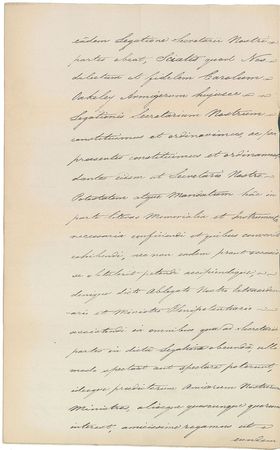 eâdem Legatione Secretarii Nostri
partes obeat, Sciatis quod Nos
dilectum et fidelem Carolum
Oakeley Armigerum hujusce
Legationis Secretarium Nostrum
constituimus et ordinavimus ac per
presentes constituimus et ordinamus
dantes eidem ut Secretario Nostro
Potestatem atque Mandatum hâc in
parte literas Memorialia et Instrumenta
necessaria conficiendi et quibus convenit
exhibendi, nec non eadem prout
se obtulerit petendi accipiendique,
denique dicto Ablegato Nostro Extraordin-
ario et Ministro Plenipotentiario
assistendi in omnibus quæ ad Secretarii
partes in dictâ Legatione obeundas, ullo
modo spectant aut spectare poterunt,
ideoque prædictorum Amicorum Nostrorum
Ministros, aliosque quoscunque quorum
interest, amicissime rogamus ut
eundem